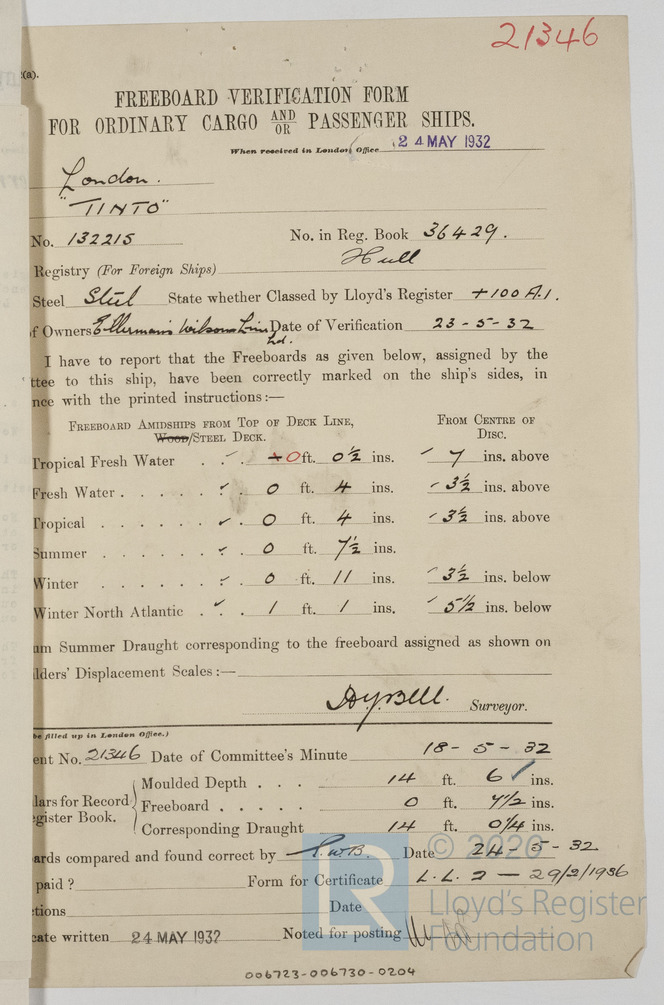 21346
(a).
FREEBOARD VERIFICATION FORM
FOR ORDINARY CARGO AND/OR PASSENGER SHIPS.
When received in London Office 24 MAY 1932
London.
"TINTO"
No. 132215 No. in Reg. Book 36429.
Registry (For Foreign Ships) Hull
Steel Steel State whether Classed by Lloyd's Register +100 A.1.
of Owners Ellerman's Wilson Line Ltd. Date of Verification 23-5-32
I have to report that the Freeboards as given below, assigned by the
ttee to this ship, have been correctly marked on the ship's sides, in
nce with the printed instructions:—
FREEBOARD AMIDSHIPS FROM TOP OF DECK LINE, FROM CENTRE OF
WOOD/STEEL DECK. DISC.
Tropical Fresh Water . . 0 ft. 0½ ins. 7 ins. above
Fresh Water . . . . . . 0 ft. 4 ins. 3½ ins. above
Tropical . . . . . . 0 ft. 4 ins. 3½ ins. above
Summer . . . . . . 0 ft. 7½ ins.
Winter . . . . . . 0 ft. 11 ins. 3½ ins. below
Winter North Atlantic . . 1 ft. 1 ins. 5½ ins. below
um Summer Draught corresponding to the freeboard assigned as shown on
ilders' Displacement Scales:—
Surveyor.
be filled up in London Office.)
ent No. 21346 Date of Committee's Minute 18-5-32
Moulded Depth . . . 14 ft. 6 ins.
lars for Record Freeboard . . . . . 0 ft. 7½ ins.
egister Book. Corresponding Draught 14 ft. 0¼ ins.
ards compared and found correct by Date 24-5-32
paid? Form for Certificate L.L. 2 — 29/2/1936
ctions Date
cate written 24 MAY 1932 Noted for posting
© 2020
LR
Lloyd's Register
Foundation
006723-006730-0204